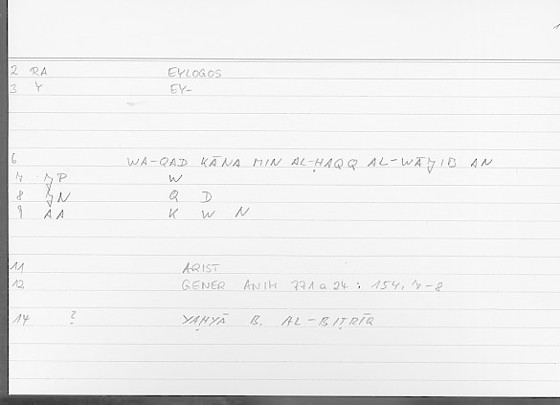 2 RA EYLOGOS
3 Y EY-
6 WA-QAD KĀNA MIN AL-ḤAQQ AL-WĀǦIB AN
7 ǦP W
8 ǦN Q D
9 AA K W N
11 ARIST
12 GENER ANIM 771a24 : 154, 7-8
14 ? YAḤYĀ B. AL-BIṬRĪQ